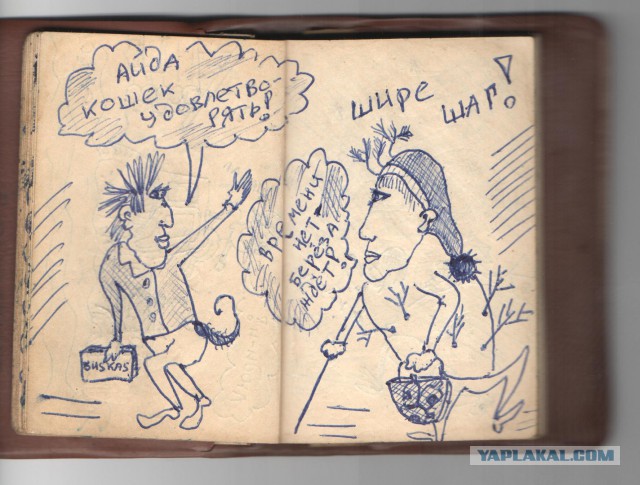 АЙДА
КОШЕК
УДОВЛЕТВО-
РЯТЬ!
ШИРЕ
ШАГ!
ВРЕМЕНИ
НЕТ,
БЕРЕЗА
ЖДЕТ!
ВИSKAS
YAPLAKAL.COM